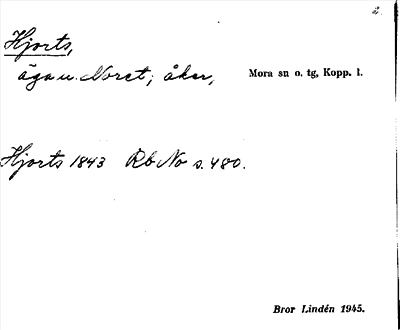 2.
Hjorts,
äga u. Noret; åker, Mora sn o. tg, Kopp. l.
Hjorts 1843 Rb No s. 480.
Bror Lindén 1945.